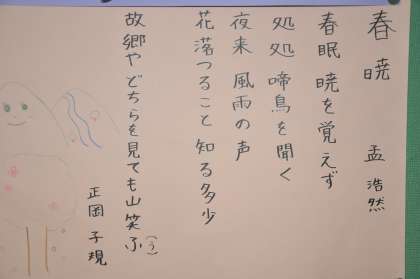 春暁 孟浩然
春眠 暁を覚えず
処処 啼鳥を聞く
夜来 風雨の声
花落つること 知る多少
故郷や どちらを見ても 山笑ふ(う)
正岡子規